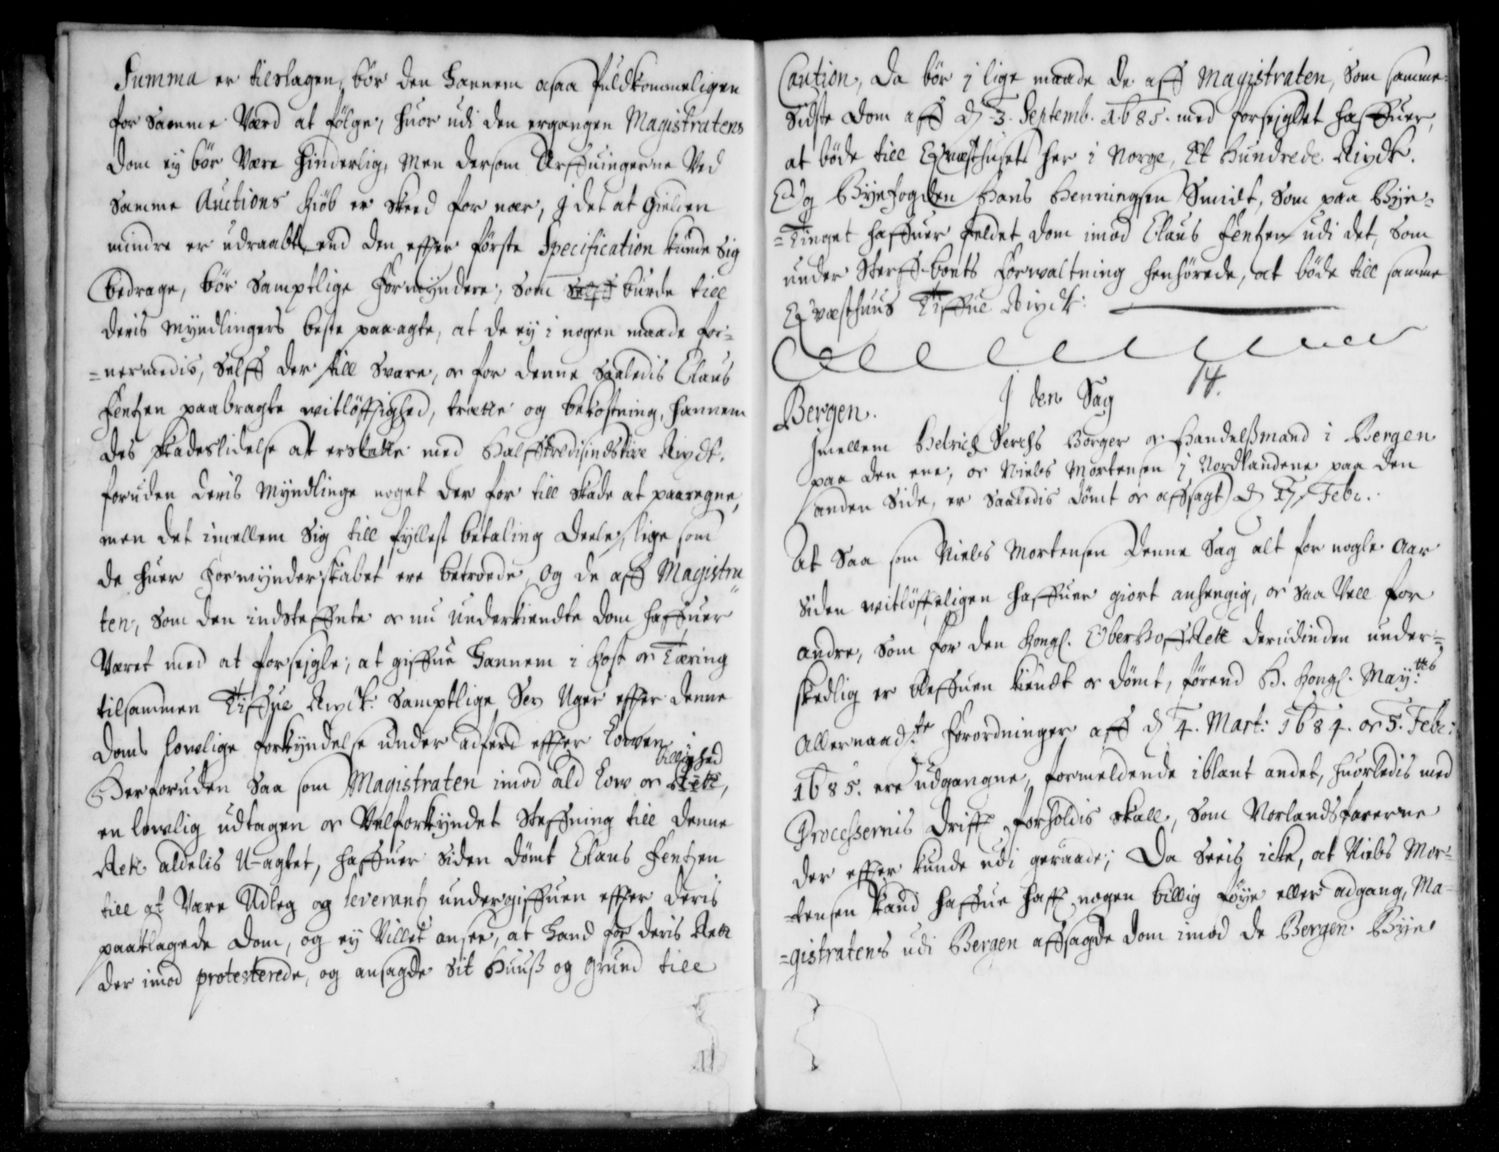 Summa er tilslagen, bør den hannem ogsaa fuldkommeligen
for samme Værd at følge, huor udi den ergangen Magistratens
Dom ey bør være hinderlig, Men dersom Arffuingerne ved
samme Auctions kiøb er skeed for nær, J det at Gielden
mindre er udraabt end den effter første Specification kunde sig
bedrage, bør samptlige Formyndere, som burde till
deris Myndlingers beste paa agte, at de ey i nogen maade for-
=nermedis, selff der till svare, oc for denne saaledis Claus
Fentzen paabragte vitløfftighed, trætte og bekostning, hannem
des skadeslidelse at erstatte med Halfftrediesindstive Rixdr.
foruden deris Myndlinge noget der for till skade at paaregne,
men det imellem sig till fyllest betaling deele, lige som
de huer Formynderskabet ere betroede, Og de aff Magistra-
ten, som den indsteffnte oc nu underkiendte dom haffuer
Været med at forsejgle, at giffue hannem i Kost oc Tæring
tilsammen Tiffue Rixdr: samptlige Sex Uger effter denne
Doms lovlige forkyndelse under adferd effter Lowen.
billighed
Herforuden saa som Magistraten imod ald Low oc Rett,
en lovlig udtagen oc Velforkyndet Steffning till denne
Rett aldelis U-agtet, haffuer siden dømt Claus Fentzen
till at Være Udleg og leverantz undergiffuen effter deris
paaklagede Dom, og ey Villet ansee, at hand for deris Rett
der imod protesterede, og ansagde sit Huuss og Grund till
Caution, Da bør j lige maade de aff Magistraten, som samme
sidste Dom aff d 3. Septemb. 1685. med forsejglet haffuer,
at bøde till Qvæsthuset her i Norge, Et Hundrede Rixdr.
Og Byefogden Hans Henningsen Smidt, som paa Bye-
=Tinget haffuer feldet dom imod Claus Fentzen udi det, som
under Sterff-boets Forvaltning henhørede, at bøde till samme
Qvæsthuus Tiffue Rixdr:
14.
Bergen. J den Sag
Jmellem Hetrich Serchs Borger oc Handelssmand i Bergen
paa den ene, oc Niels Mortensen j Nordlandene paa den
anden Side, er saaledis dømt oc affsagt d 17 Febr.
At saa som Niels Mortensen denne Sag alt for nogle Aar
siden vitløffteligen haffuer giort anhengig, oc saa vell for
andre, som for den Kongl. OberHoffRett derudinden under-
skedlig er bleffuen kiendt oc dømt, førend H. Kongl. May:tts
Allernaad:te Forordninger aff d 4. Mart: 1684. oc 5. Febr:
1685. ere udgangne, formeldende iblant andet, huorledis med
Processernis drifft forholdis skall, som Norlandsfarerne
der effter kunde udi geraade; Da seeis icke, at Niels Mor-
=tensen kand haffue hafft nogen billig Løye eller adgang, Ma-
=gistratens udi Bergen affsagde dom imod de Bergen Bye